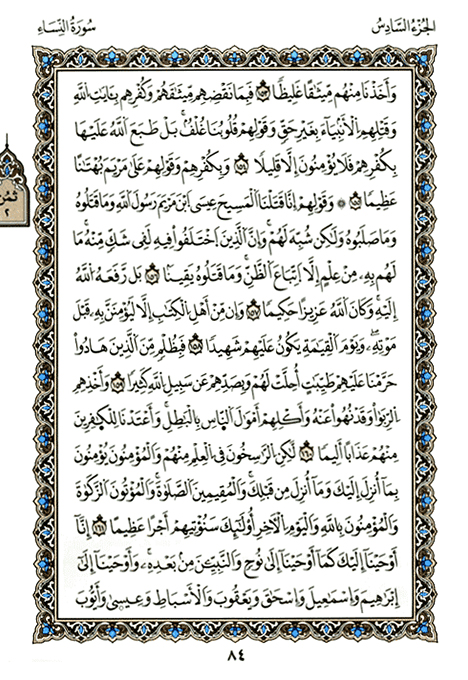 الجُزْءُ السَّادِسُ
سُورَةُ النِّسَاءِ
وَأَخَذْنَا مِنْهُم مِّيثَٰقًا غَلِيظًا فَبِمَا نَقْضِهِم مِّيثَٰقَهُمْ وَكُفْرِهِم بِـَٔايَٰتِ اللَّهِ
وَقَتْلِهِمِ الْأَنۢبِيَآءَ بِغَيْرِ حَقٍّ وَقَوْلِهِمْ قُلُوبُنَا غُلْفٌ بَلْ طَبَعَ اللَّهُ عَلَيْهَا
بِكُفْرِهِمْ فَلَا يُؤْمِنُونَ إِلَّا قَلِيلًا وَبِكُفْرِهِمْ وَقَوْلِهِمْ عَلَىٰ مَرْيَمَ بُهْتَٰنًا
عَظِيمًا ۞ وَقَوْلِهِمْ إِنَّا قَتَلْنَا الْمَسِيحَ عِيسَى ابْنَ مَرْيَمَ رَسُولَ اللَّهِ وَمَا قَتَلُوهُ
وَمَا صَلَبُوهُ وَلَٰكِن شُبِّهَ لَهُمْ وَإِنَّ الَّذِينَ اخْتَلَفُوا فِيهِ لَفِى شَكٍّ مِّنْهُ مَا
لَهُم بِهِۦ مِنْ عِلْمٍ إِلَّا اتِّبَاعَ الظَّنِّ وَمَا قَتَلُوهُ يَقِينًا بَل رَّفَعَهُ اللَّهُ
إِلَيْهِ وَكَانَ اللَّهُ عَزِيزًا حَكِيمًا وَإِن مِّنْ أَهْلِ الْكِتَٰبِ إِلَّا لَيُؤْمِنَنَّ بِهِۦ قَبْلَ
مَوْتِهِۦ وَيَوْمَ الْقِيَٰمَةِ يَكُونُ عَلَيْهِمْ شَهِيدًا فَبِظُلْمٍ مِّنَ الَّذِينَ هَادُوا
حَرَّمْنَا عَلَيْهِمْ طَيِّبَٰتٍ أُحِلَّتْ لَهُمْ وَبِصَدِّهِمْ عَن سَبِيلِ اللَّهِ كَثِيرًا وَأَخْذِهِمِ
الرِّبَوٰا وَقَدْ نُهُوا عَنْهُ وَأَكْلِهِمْ أَمْوَٰلَ النَّاسِ بِالْبَٰطِلِ وَأَعْتَدْنَا لِلْكَٰفِرِينَ
مِنْهُمْ عَذَابًا أَلِيمًا لَّٰكِنِ الرَّٰسِخُونَ فِى الْعِلْمِ مِنْهُمْ وَالْمُؤْمِنُونَ يُؤْمِنُونَ
بِمَآ أُنزِلَ إِلَيْكَ وَمَآ أُنزِلَ مِن قَبْلِكَ وَالْمُقِيمِينَ الصَّلَوٰةَ وَالْمُؤْتُونَ الزَّكَوٰةَ
وَالْمُؤْمِنُونَ بِاللَّهِ وَالْيَوْمِ الْأَخِرِ أُولَٰٓئِكَ سَنُؤْتِيهِمْ أَجْرًا عَظِيمًا إِنَّآ
أَوْحَيْنَآ إِلَيْكَ كَمَآ أَوْحَيْنَآ إِلَىٰ نُوحٍ وَالنَّبِيِّـۧنَ مِنۢ بَعْدِهِۦ وَأَوْحَيْنَآ إِلَىٰٓ
إِبْرَٰهِيمَ وَإِسْمَٰعِيلَ وَإِسْحَٰقَ وَيَعْقُوبَ وَالْأَسْبَاطِ وَعِيسَىٰ وَأَيُّوبَ
ثُمُن
٢
٨٤